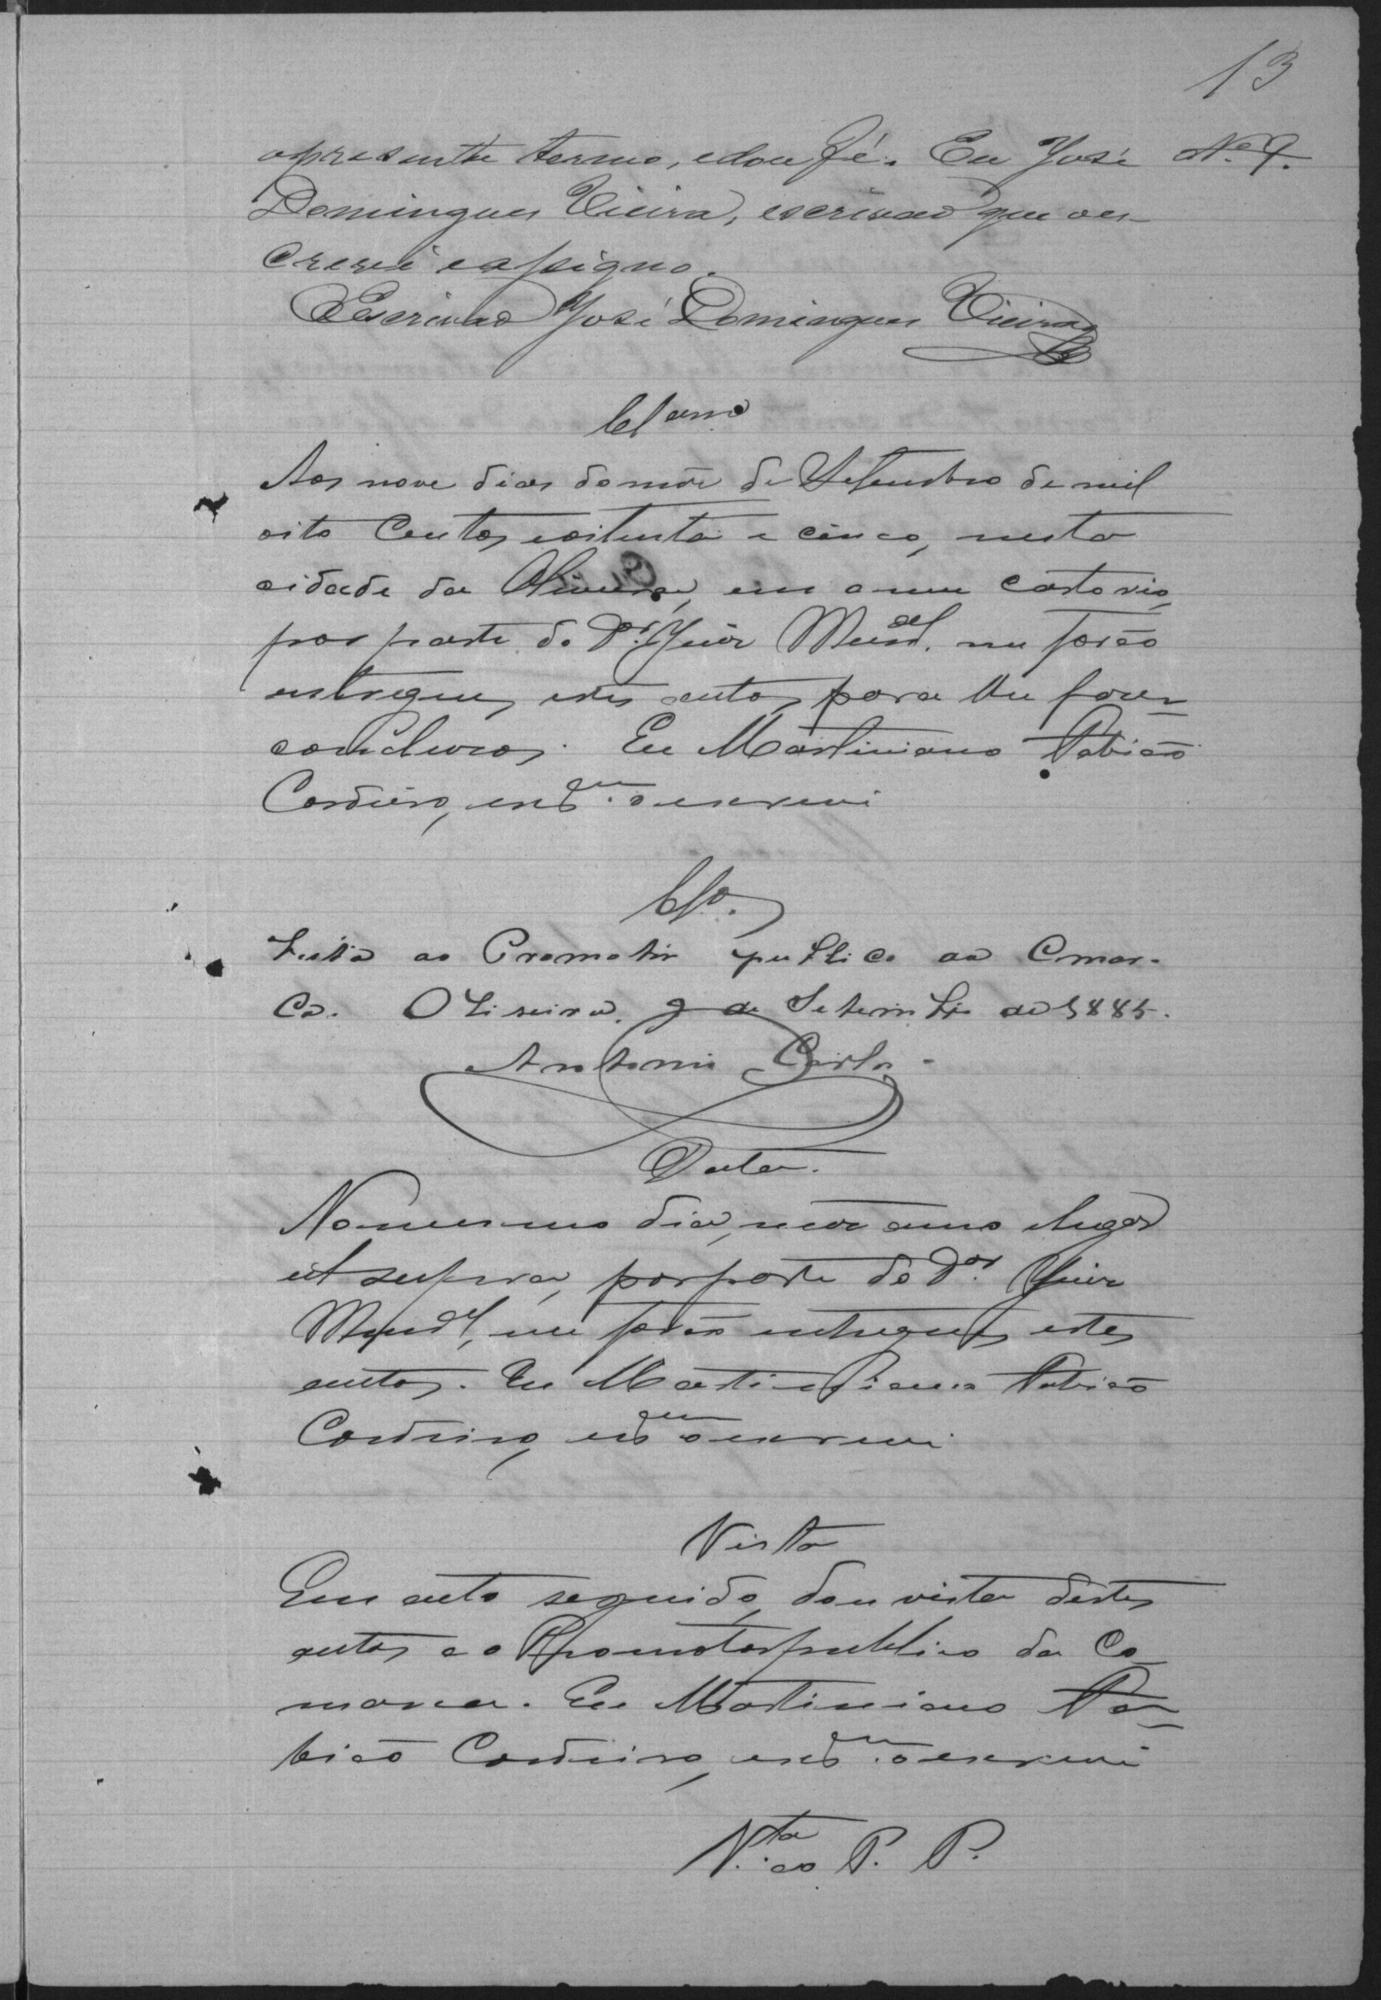 13
apresente termo, e dou fé. Eu José Nº 9.
Domingues Vieira, escrivão que o es-
crevi e assigno.
O Escrivão José Domingues Vieira
Clsam
Aos nove dias do mez de Setembro de mil
oito centos e oitenta e cinco, nesta
cidade da Oliveira, em o meu cartorio,
por parte do Dor. Juiz Munal. me forão
entregues estes autos para lhe fazer
conclusos. Eu Martiniano
Cordeiro, escam. o escrevi
Clso.
Vista ao Promotor publico da Comar-
ca. Oliveira, 9 de Setembro de 1885.
Antonio Carlos
Data.
No mesmo dia, mez anno e lugar
ut supra, por parte do Dor. Juiz
Munal, me forão entregues estes
autos. Eu Martiniano
Cordeiro, escam o escrevi.
Vista
Em acto seguido, dou vista destes
autos ao Promotor publico da Co-
marca. Eu Martiniano
Cordeiro, escam. o escrevi
V.ta ao P. P.